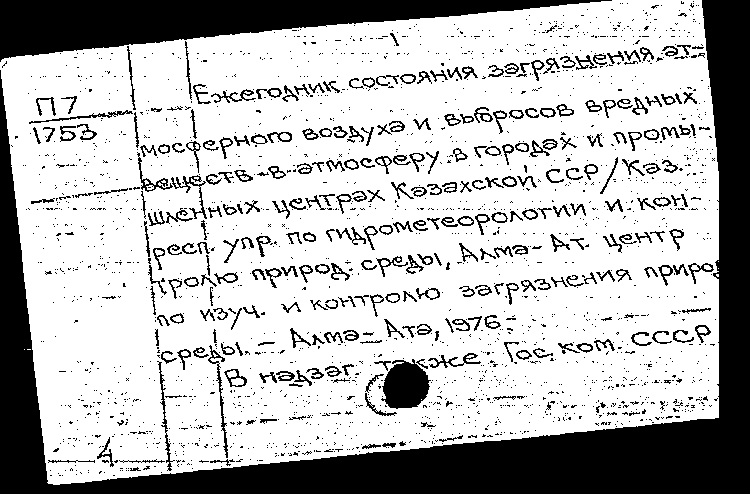 1
П7
1753
Ежегодник состояния загрязнения ат-
мосферного воздуха и выбросов вредных
веществ в атмосферу в городах и промы-
шленных центрах Казахской ССР / Каз.
респ. упр. по гидрометеорологии и кон-
тролю природ. среды, Алма-Ат. центр
по изуч. и контролю загрязнения природ
среды. – Алма-Ата, 1976 -
В надзаг. также: Гос. ком. СССР
4